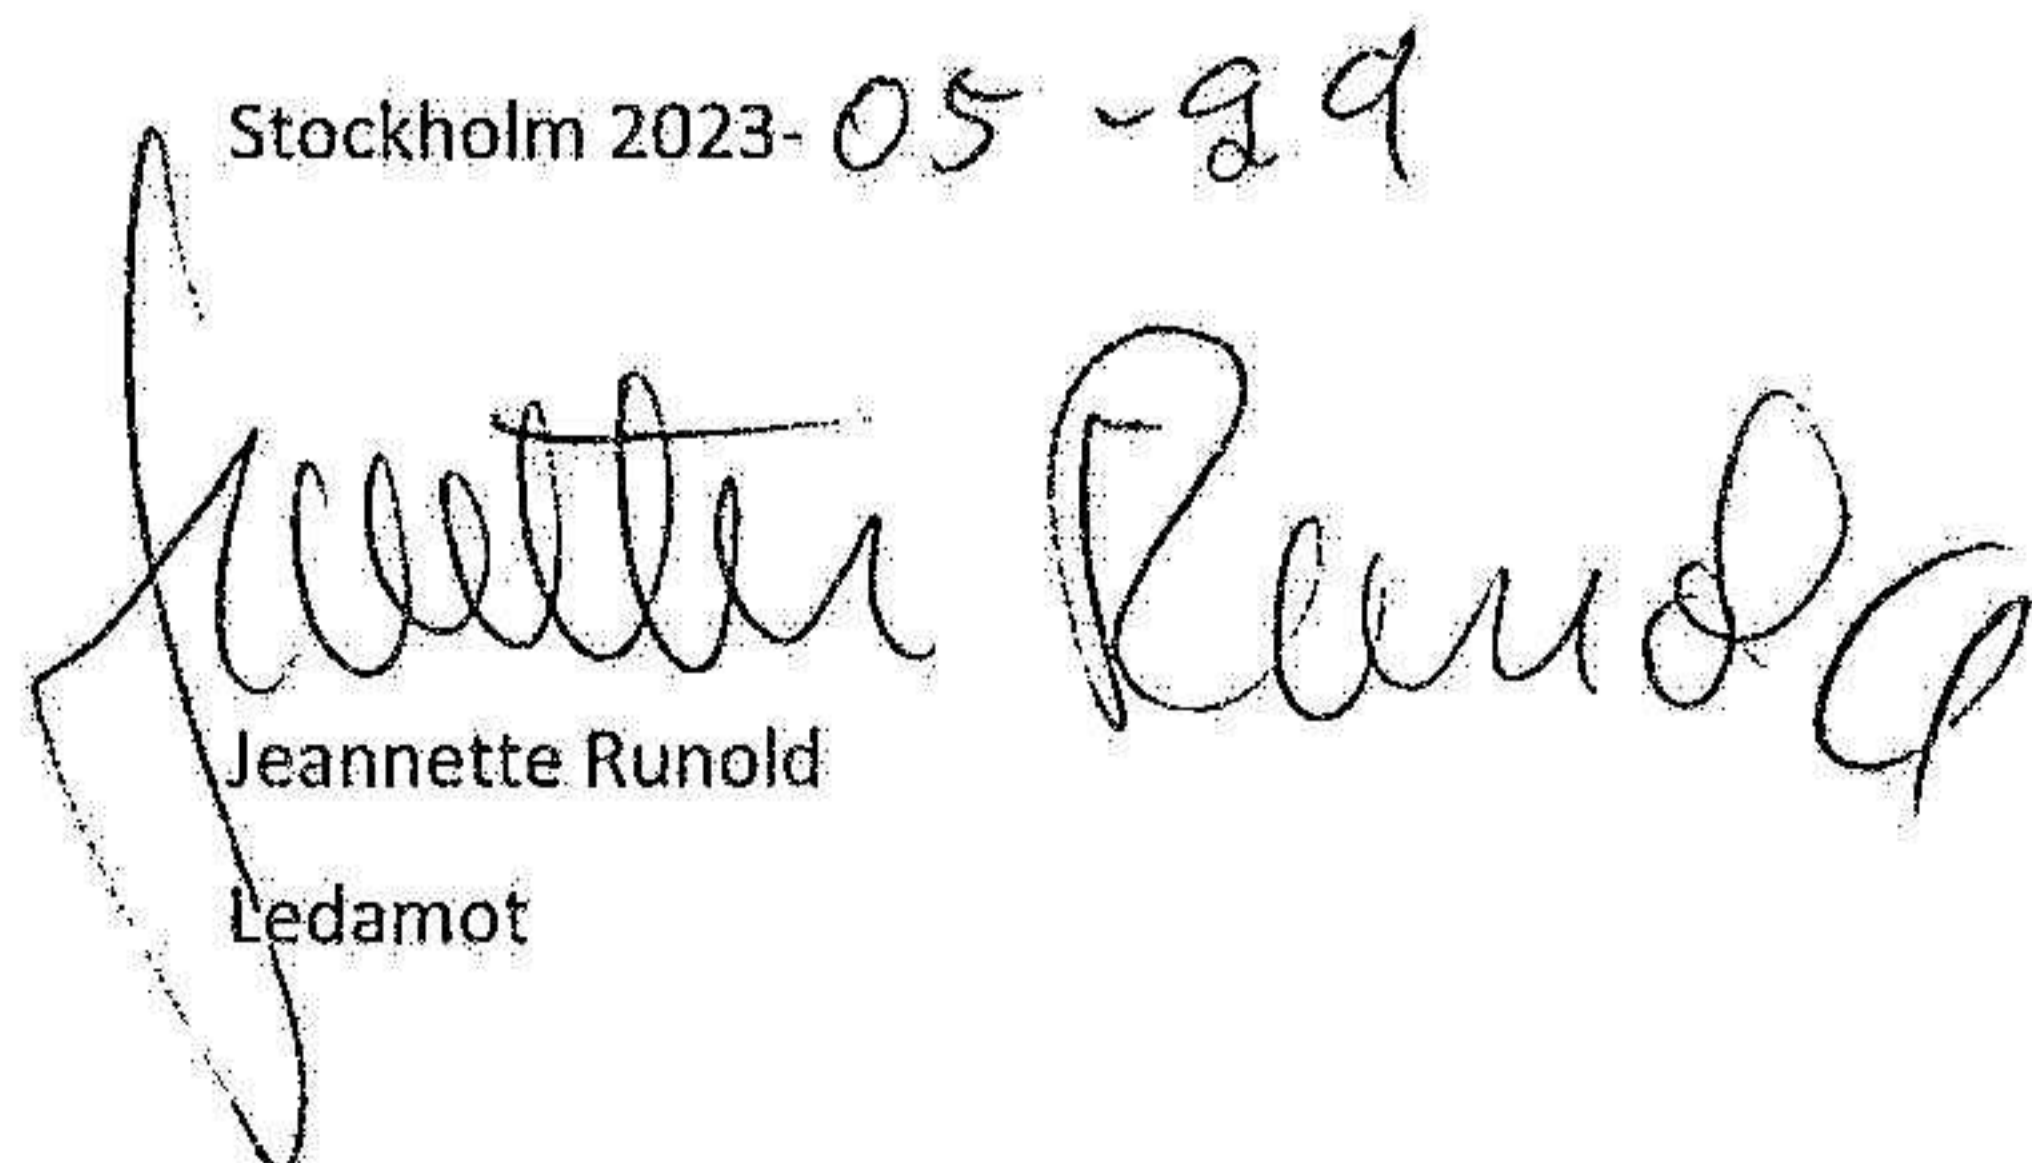 Stockholm 2023-05-29
Jeannette Runold
Jeannette Runold
Ledamot